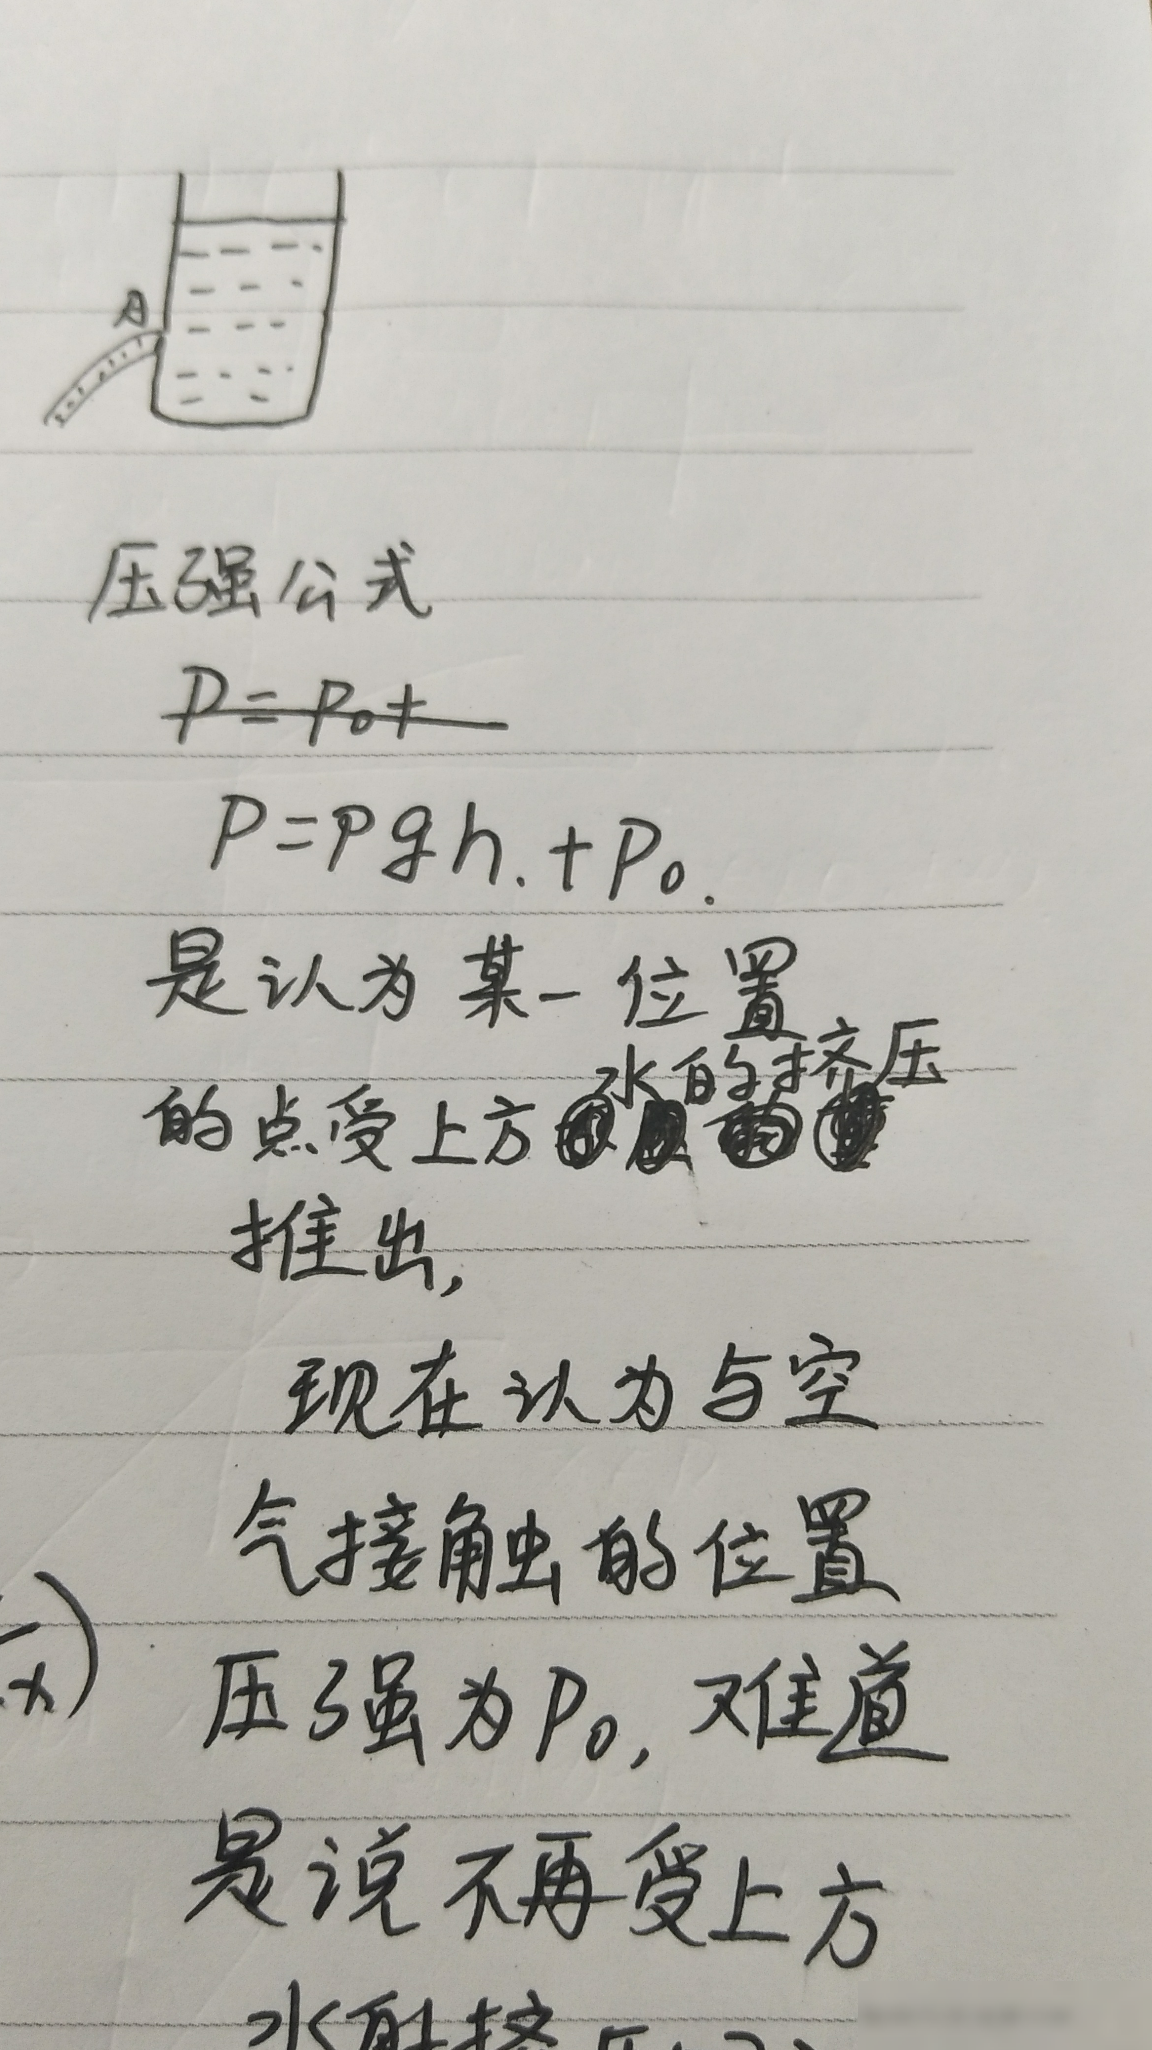 A
压强公式
P=P₀+
P=ρgh.+P₀.
是认为某一位置
水的挤压
的点受上方
推出,
现在认为与空
气接触的位置
压强为P₀,难道
x)
是说不再受上方
水的挤压